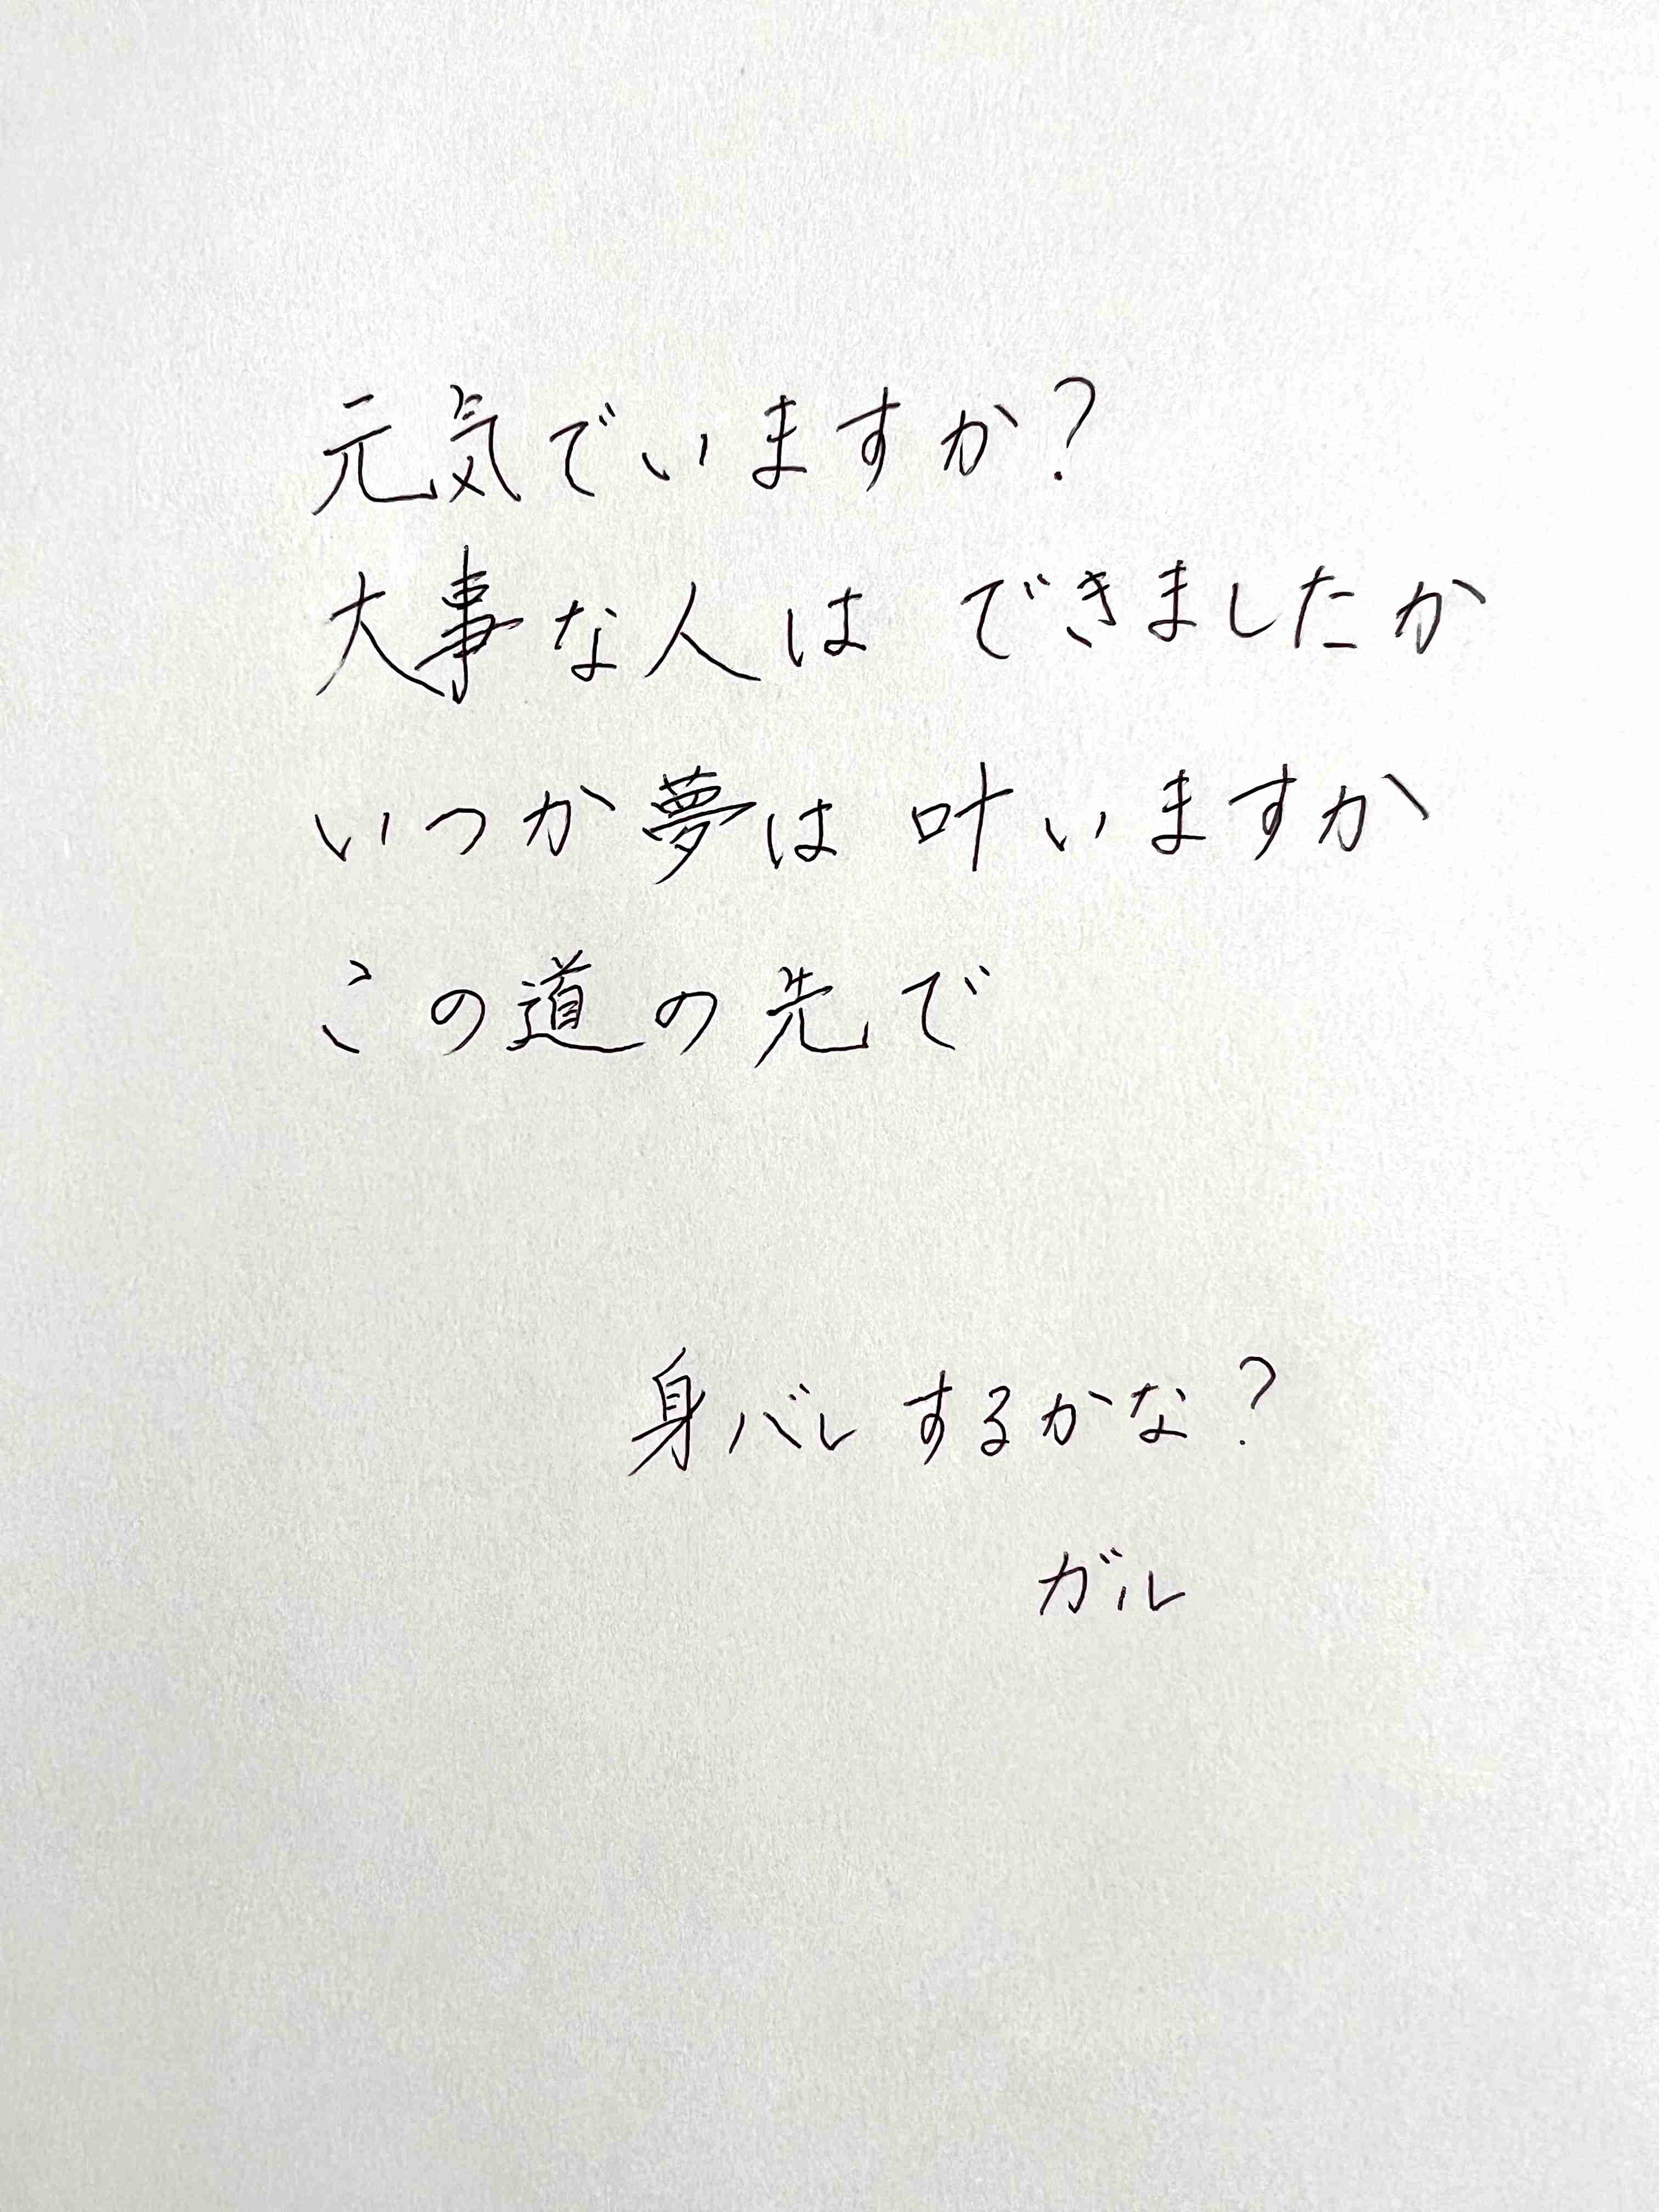 元気でいますか?
大事な人は できましたか
いつか夢は 叶いますか
この道の先で
身バレするかな?
ガル